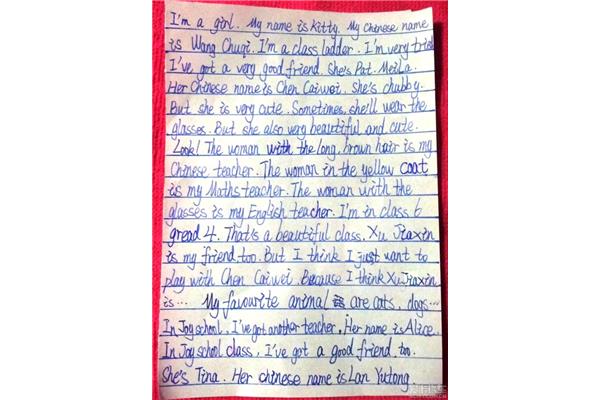 I'm a girl. My name is kitty. My Chinese name
is Wang Chuqi. I'm a class ladder. I'm very
I've got a very good friend. She's Pat. Meila.
Her Chinese name is Chen Caiwei. She's chubby.
But she is very cute. Sometimes, she'll wear the
glasses. But she also very beautiful and cute.
Look! The woman with the long, brown hair is my
Chinese teacher. The woman in the yellow coat
is my Maths teacher. The woman with the
glasses is my English teacher. I'm in class 6
gread 4. That's a beautiful class. Xu Jiaxin
is my friend, too. But I think I just want to
play with Chen Caiwei. Because I think Xu Jiaxin
is... My favourite animal are cats, dogs...
In Joy school, I've got another teacher. Her name is Alice.
In Joy school class, I've got a good friend, too.
She's Tina. Her chinese name is Lan Yutong